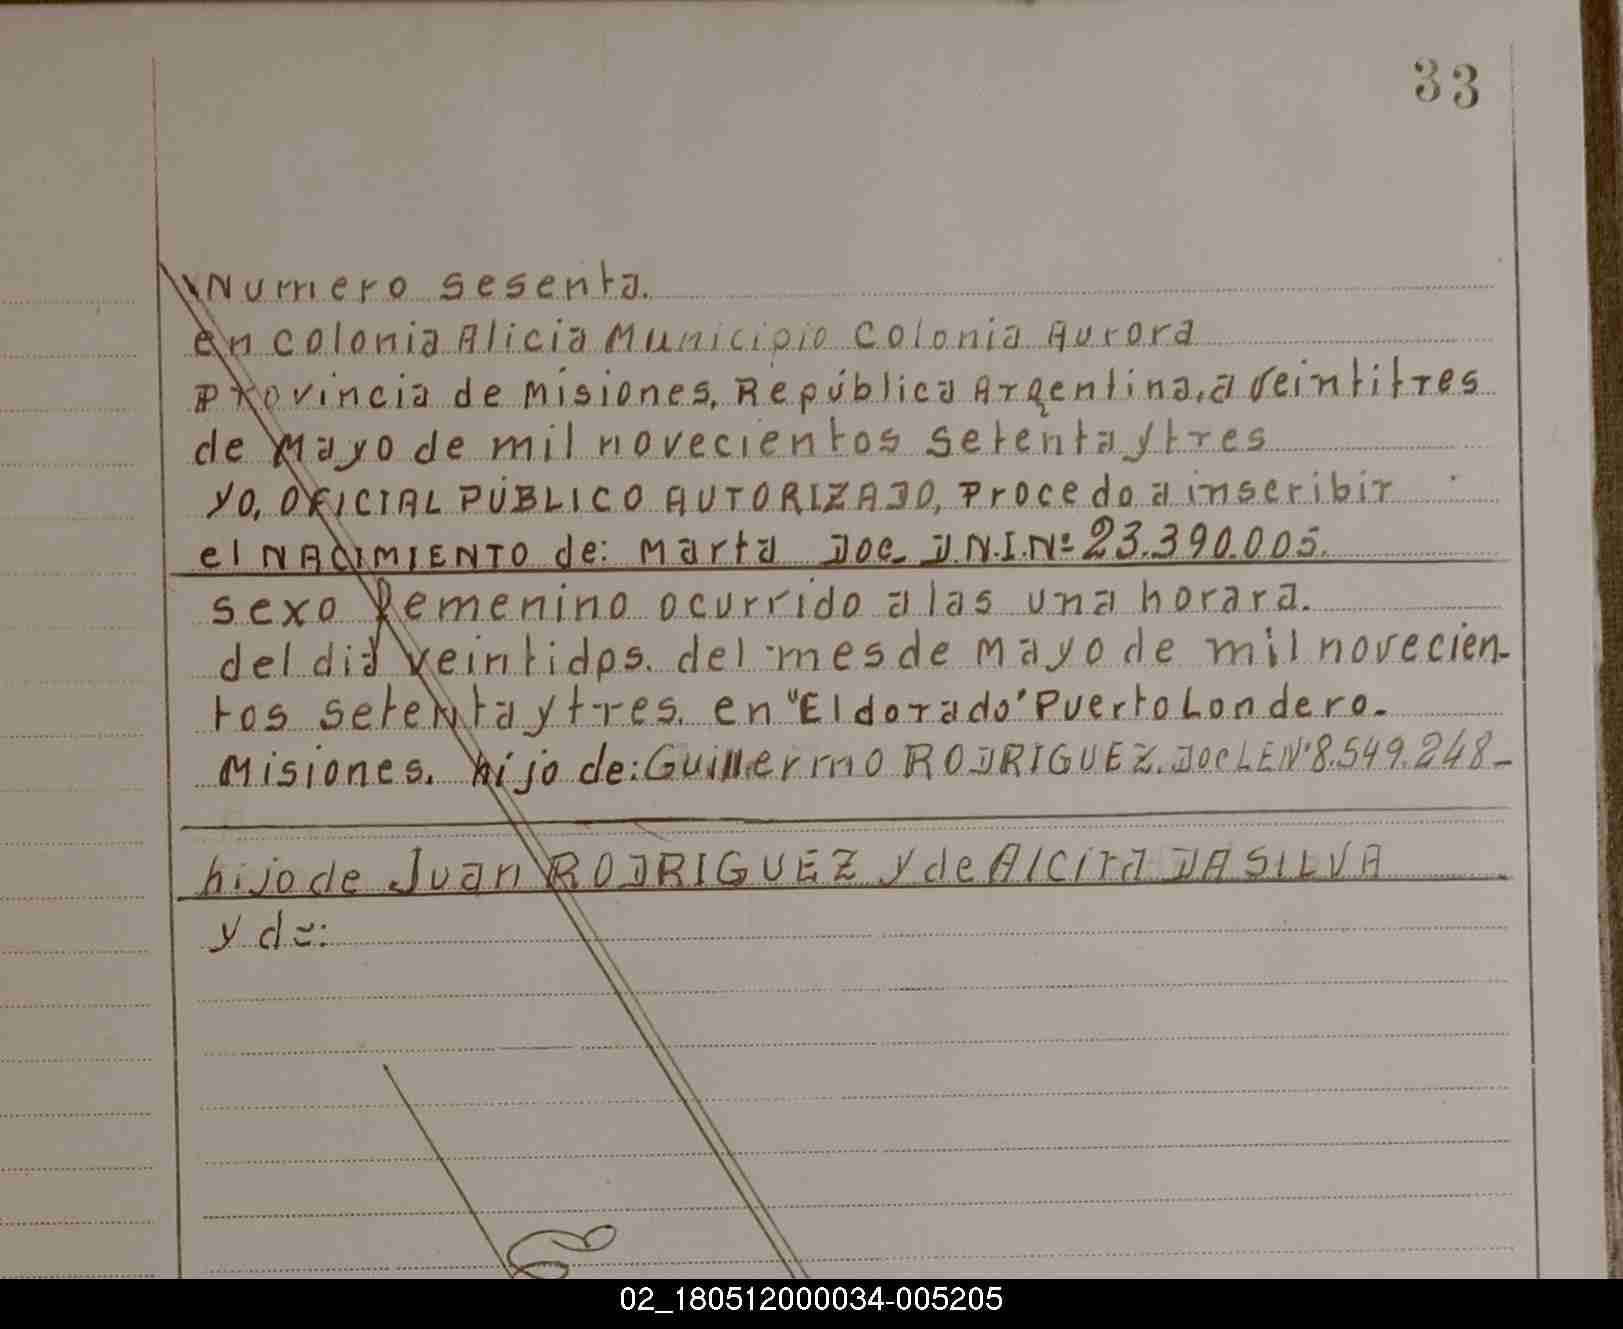 33
Numero sesenta.
en colonia Alicia Municipio Colonia Aurora
Provincia de Misiones, República Argentina, a veintitres
de Mayo de mil novecientos setenta y tres
yo, OFICIAL PÚBLICO AUTORIZADO, Procedo a inscribir
el NACIMIENTO de: Marta Doc. D.N.I. Nº 23.390.005.
sexo femenino ocurrido a las una horara.
del dia veintidos. del mes de Mayo de mil novecien-
tos setenta y tres. en "Eldorado" Puerto Londero.
Misiones. hijo de: Guillermo RODRIGUEZ. Doc L E Nº 8.549.248-
hijo de Juan RODRIGUEZ y de Alcira DA SILVA
y de:
02_180512000034-005205